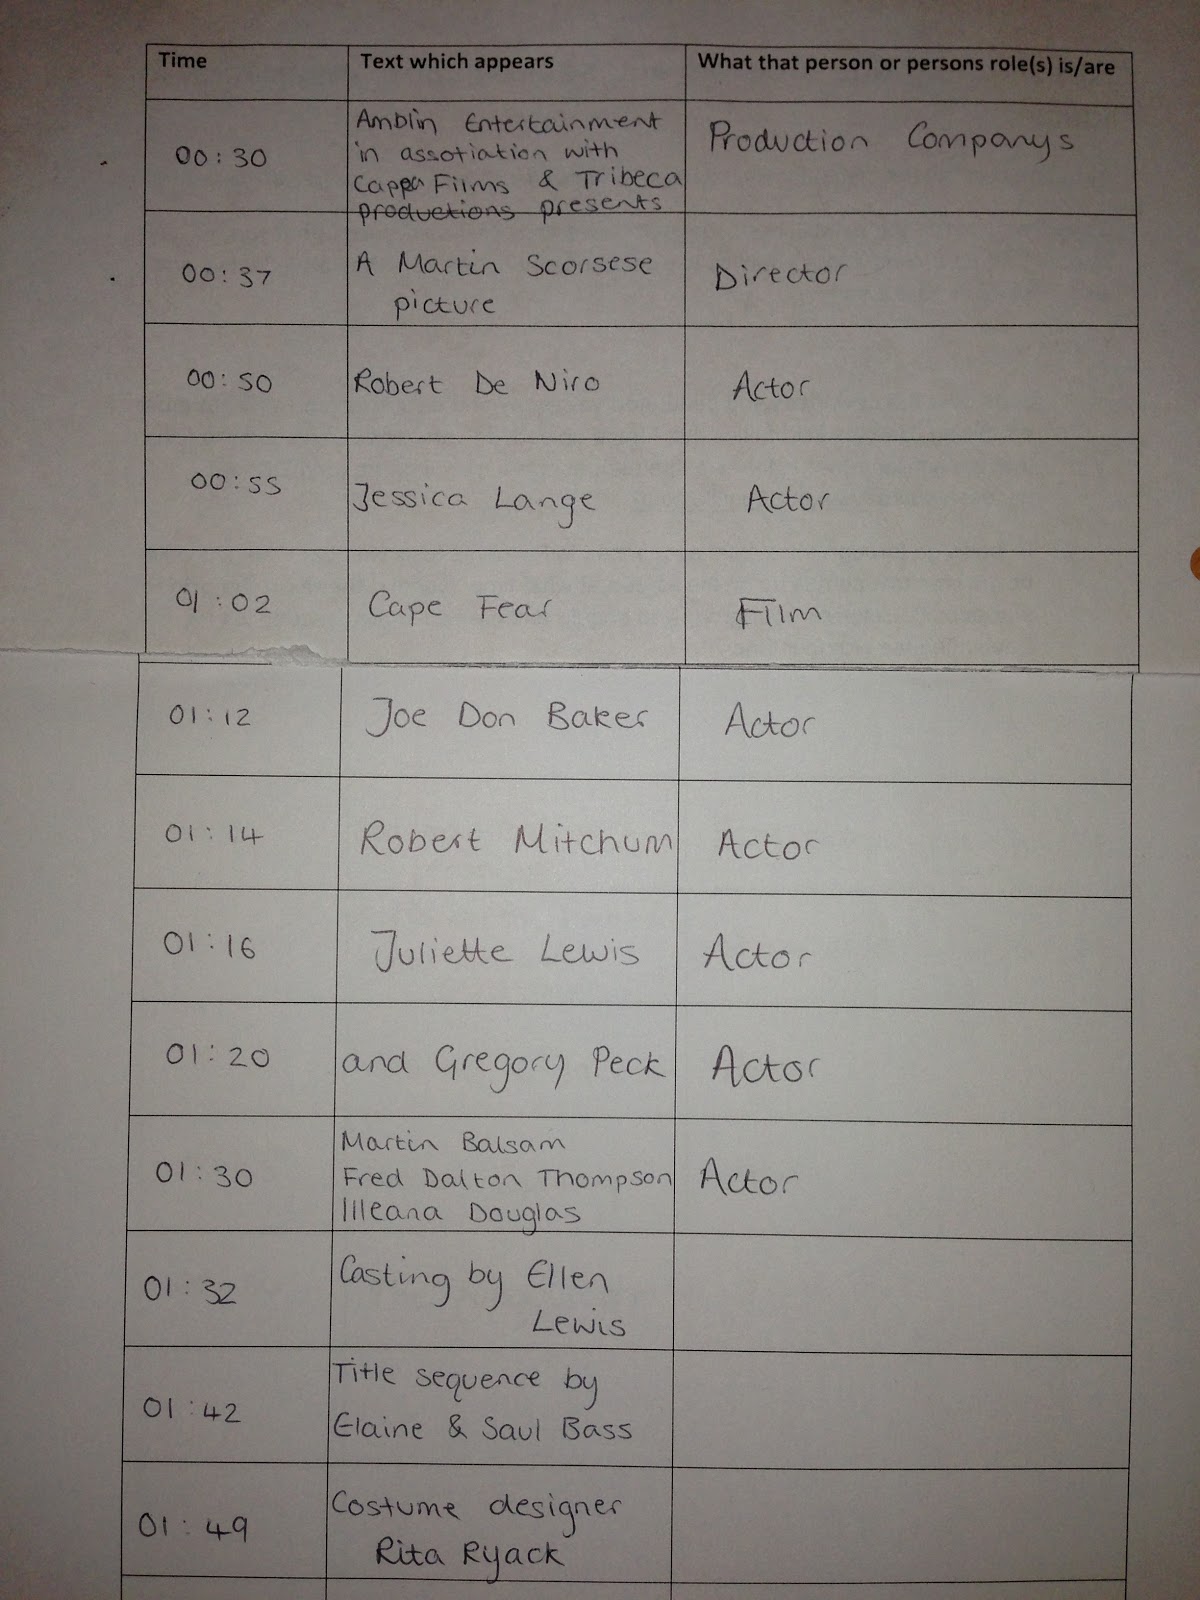 Time Text which appears What that person or persons role(s) is/are
00:30 Amblin Entertainment Production Companys
in assotiation with
Cappa Films & Tribeca
productions presents
00:37 A Martin Scorsese Director
picture
00:50 Robert De Niro Actor
00:55 Jessica Lange Actor
01:02 Cape Fear Film
01:12 Joe Don Baker Actor
01:14 Robert Mitchum Actor
01:16 Juliette Lewis Actor
01:20 and Gregory Peck Actor
01:30 Martin Balsam Actor
Fred Dalton Thompson
Illeana Douglas
01:32 Casting by Ellen
Lewis
01:42 Title sequence by
Elaine & Saul Bass
01:49 Costume designer
Rita Ryack